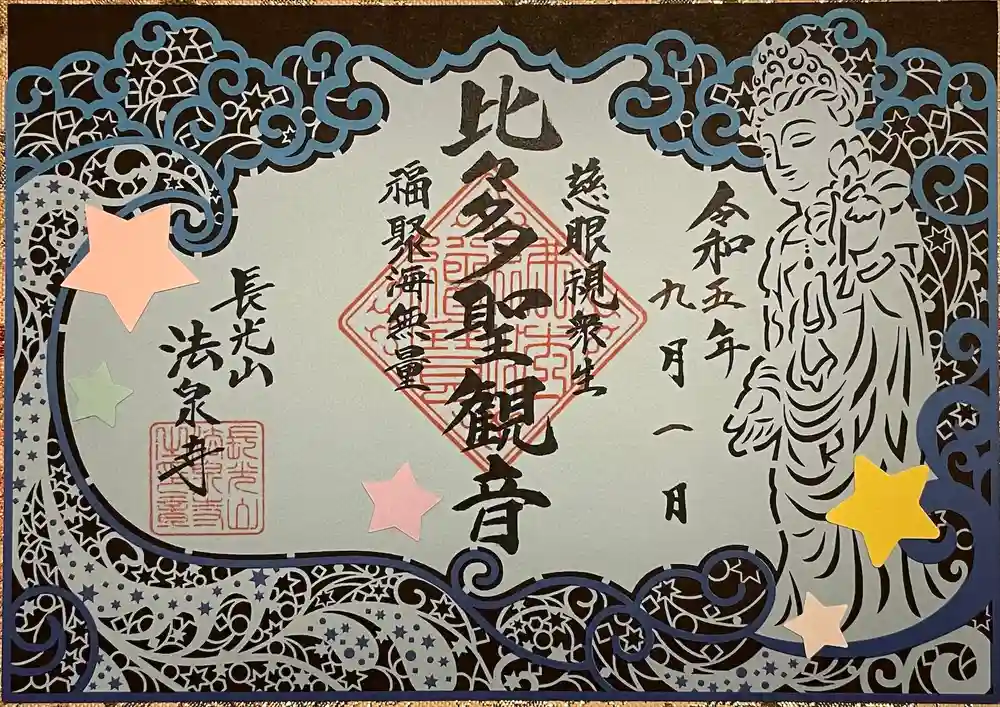 令和五年
九月一日
慈眼視衆生
比々多聖観音
福聚海無量
長光山
法泉寺